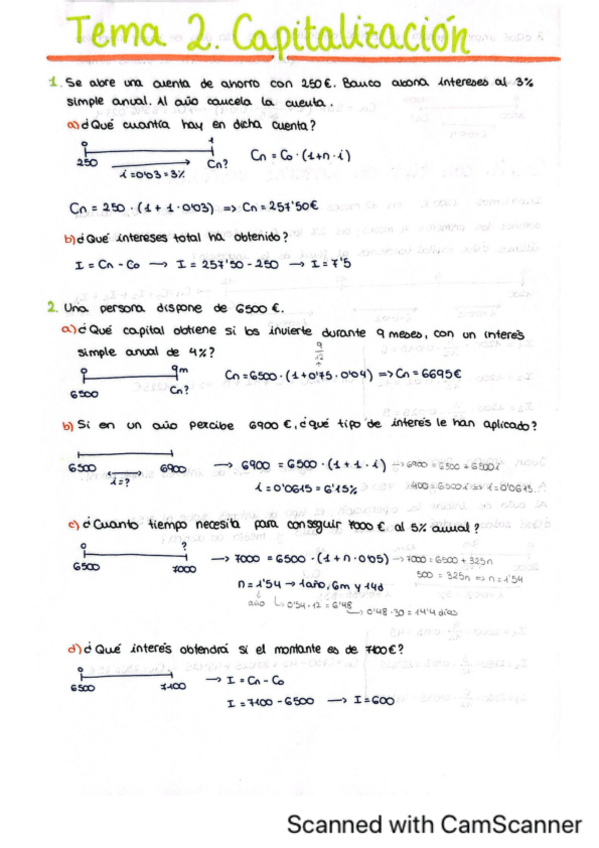 Tema 2. Capitalización
1. Se abre una cuenta de ahorro con 250€. Banco abona intereses al 3%
simple anual. Al año cancela la cuenta.
a) ¿Qué cuantía hay en dicha cuenta?
0 1
250 Cn?
i=0'03=3%
Cn = Co · (1+n·i)
Cn = 250 · (1 + 1·0'03) => Cn = 257'50€
b) ¿Qué intereses total ha obtenido?
I = Cn - Co → I = 257'50 - 250 → I = 7'5
2. Una persona dispone de 6500 €.
a) ¿Qué capital obtiene si los invierte durante 9 meses, con un interés
simple anual de 4%?
9
12
0 9m
6500 Cn?
Cn = 6500 · (1+0'75 · 0'04) => Cn = 6695€
b) Si en un año percibe 6900 €, ¿qué tipo de interés le han aplicado?
6500 6900
i=?
→ 6900 = 6500 · (1 + 1 · i) → 6900 = 6500 + 6500i
i = 0'0615 = 6'15% 400 = 6500i => i = 0'0615
c) ¿Cuanto tiempo necesita para conseguir 7000 € al 5% anual?
0 ?
6500 7000
→ 7000 = 6500 · (1 + n · 0'05) → 7000 = 6500 + 325n
500 = 325n => n = 1'54
n = 1'54 → 1año, 6m y 14d
año 0'54 · 12 = 6'48
0'48 · 30 = 14'4 días
d) ¿Qué interés obtendrá si el montante es de 7100€?
0
6500 7100
→ I = Cn - Co
I = 7100 - 6500 → I = 600
Scanned with CamScanner